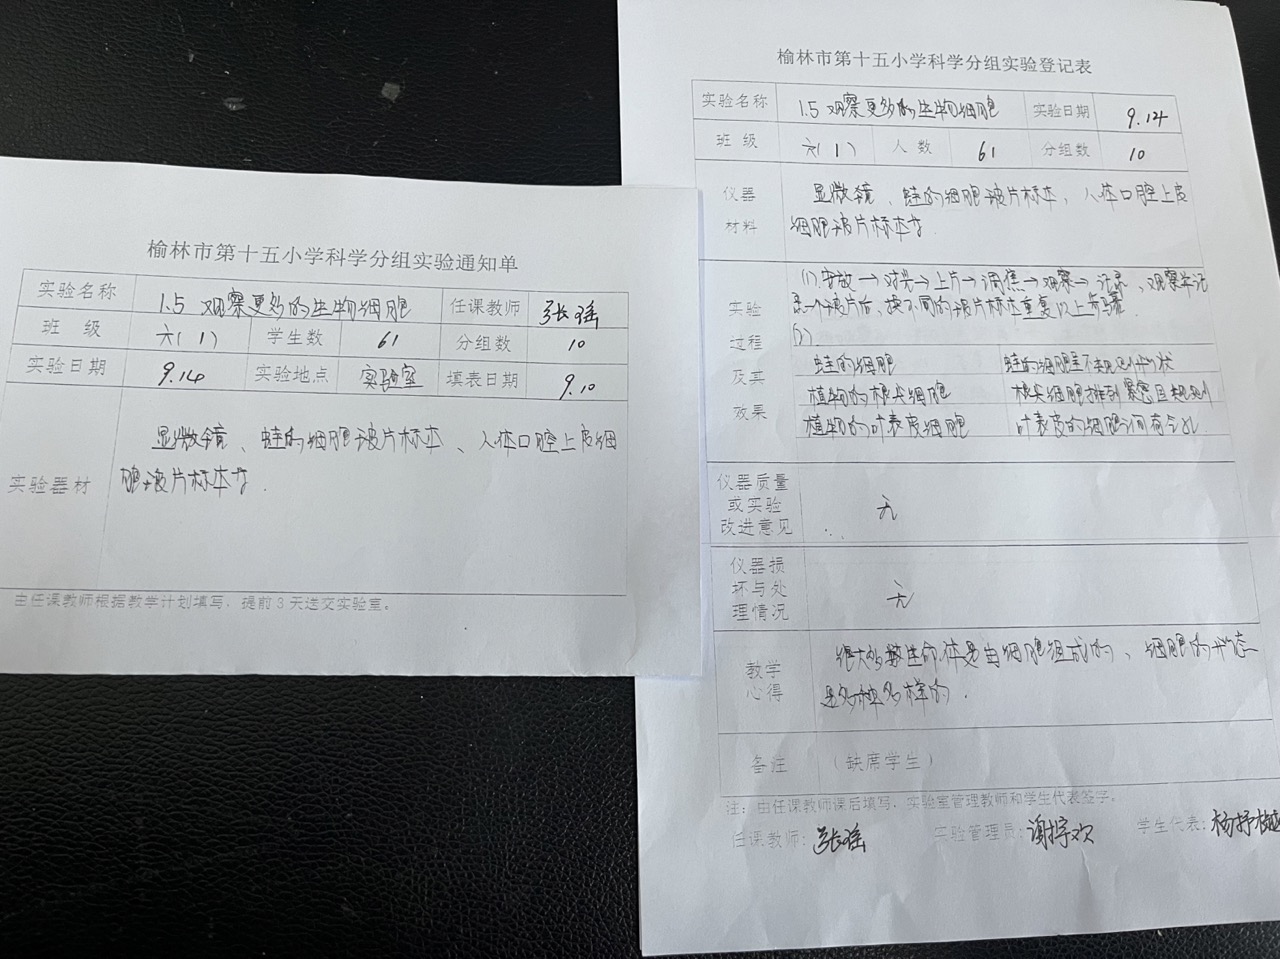 榆林市第十五小学科学分组实验通知单
实验名称 1.5 观察更多的生物细胞 任课教师 张瑶
班 级 六(1) 学生数 61 分组数 10
实验日期 9.14 实验地点 实验室 填表日期 9.10
实验器材
显微镜、蛙的细胞玻片标本、人体口腔上皮细
胞玻片标本等.
由任课教师根据教学计划填写，提前3天送交实验室。
榆林市第十五小学科学分组实验登记表
实验名称 1.5 观察更多的生物细胞 实验日期 9.14
班 级 六(1) 人 数 61 分组数 10
仪器
材料
显微镜、蛙的细胞玻片标本，人体口腔上皮
细胞玻片标本等.
实验
过程
及其
效果
(1).安放→对光→上片→调焦→观察→记录，观察并记
录一个玻片后，换不同的玻片标本重复以上步骤.
(2).
蛙的细胞 蛙的细胞呈不规则形状
植物的根尖细胞 根尖细胞排列紧密且规则
植物的叶表皮细胞 叶表皮的细胞间有气孔.
仪器质量
或实验
改进意见
无
仪器损
坏与处
理情况
无
教学
心得
绝大多数生命体是由细胞组成的、细胞的形态
是多种多样的.
备注 (缺席学生)
注：由任课教师课后填写，实验室管理教师和学生代表签字。
任课教师: 张瑶 实验管理员: 谢宇欢 学生代表: 杨抒